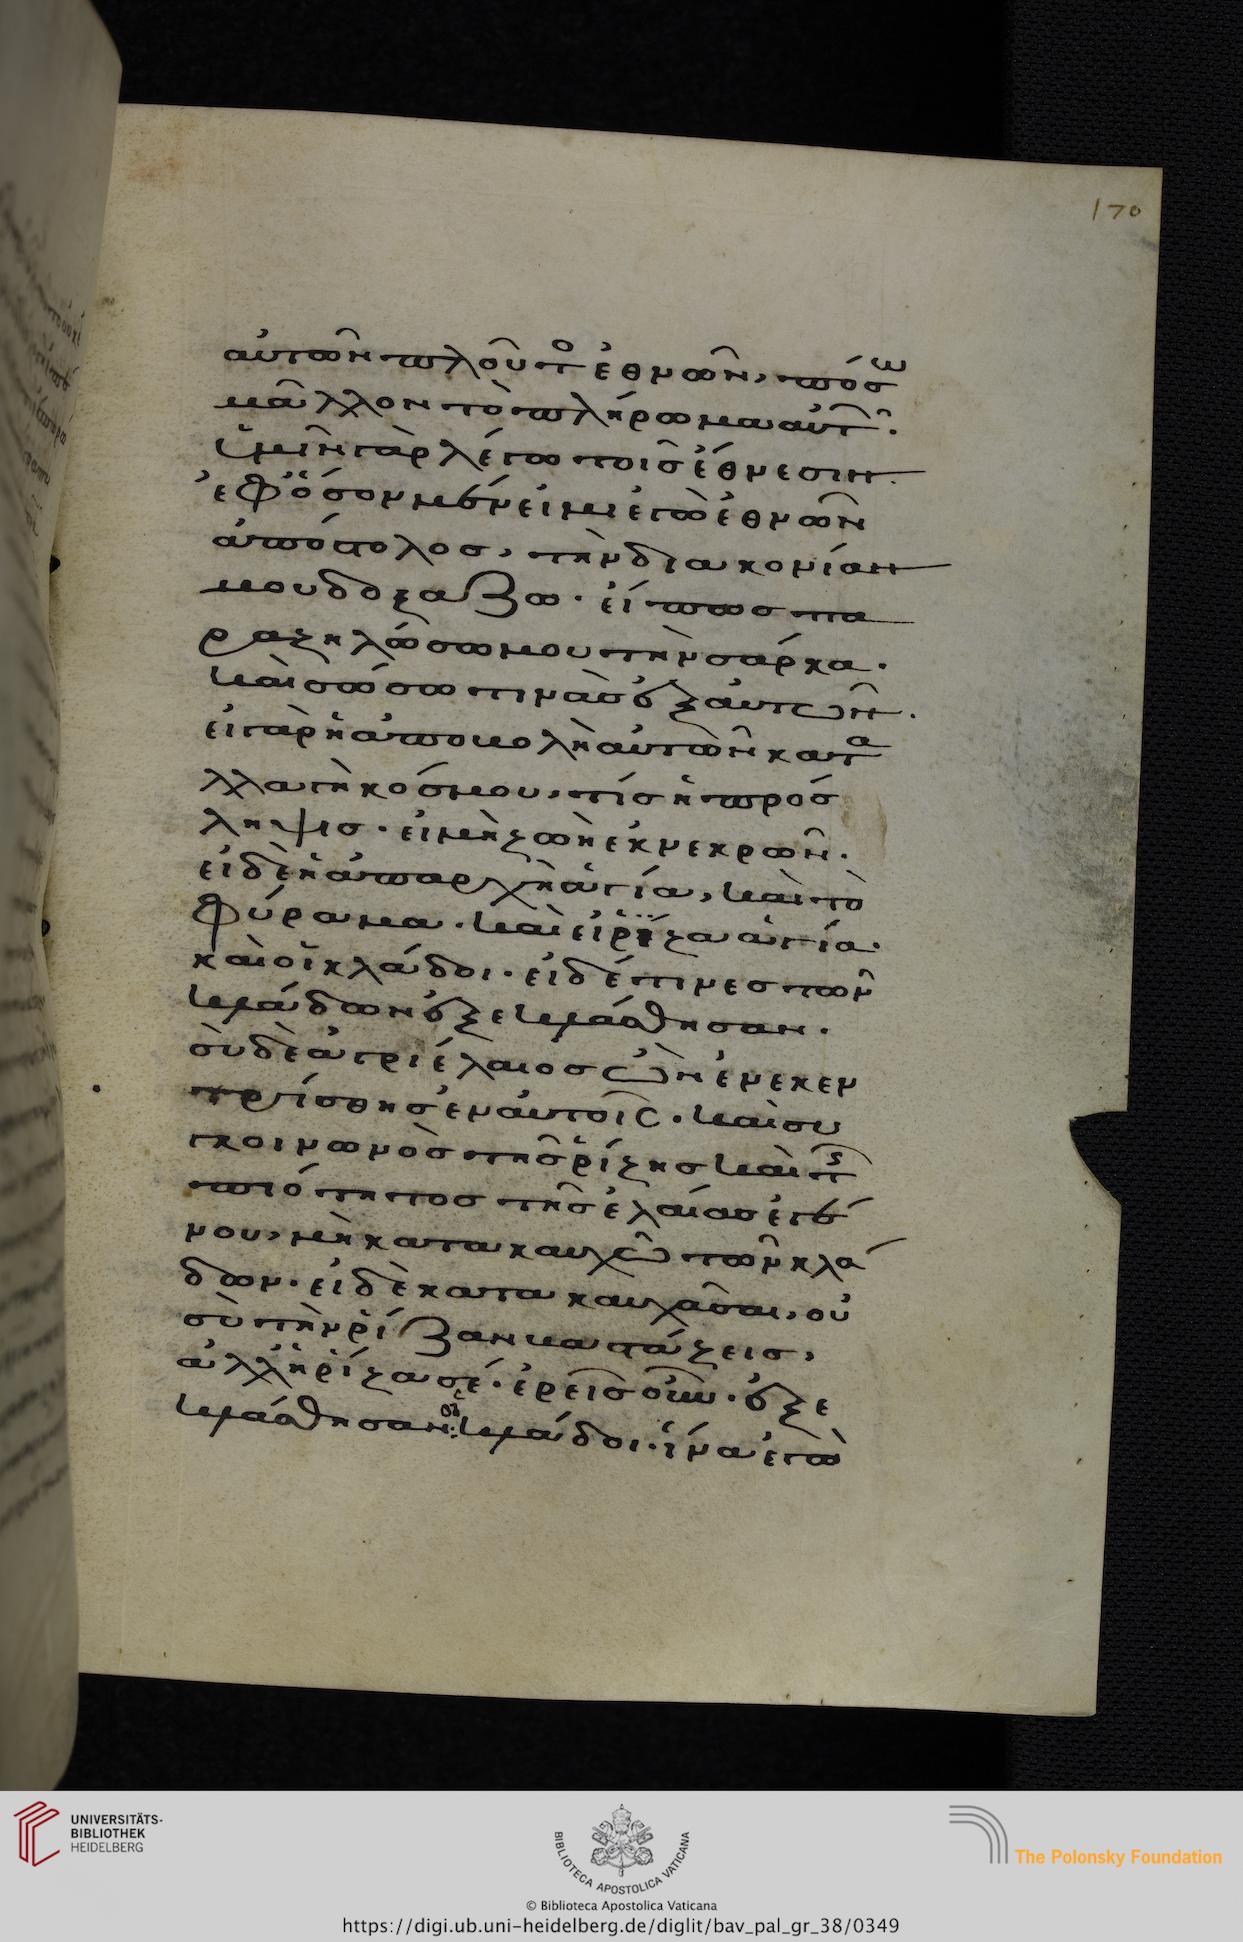 170
αὐτῶν πλοῦτο ἐθνῶν, πόσω
μᾶλλον τὸ πλήρωμα αὐτ῀.
ὑμῖν γὰρ λέγω τοῖς ἔθνεσιν.
ἐφ ὅσον μέν εἰμι ἐγὼ ἐθνῶν
ἀπόστολος, τὴν διακονίαν
μου δοξαζω. εἴ πως πα
ραζηλώσω μου τὴν σάρκα.
καὶ σώσω τινὰς ἐξ αὐτῶν.
εἰ γὰρ ἡ ἀποβολὴ αὐτῶν κατα
λλαγὴ κόσμου, τίς ἡ πρόσ
ληψις. εἰ μὴ ζωὴ ἐκ νεκρῶν.
εἰ δὲ ἡ ἀπαρχὴ ἁγία, καὶ τὸ
φύραμα. καὶ εἰ ῥίζα ἁγία.
καὶ οἱ κλάδοι. εἰ δέ τινες τῶν
κλάδων ἐξεκλάσθησαν.
σὺ δὲ ἀγριέλαιος ὢν ἐνεκεν
τρίσθης ἐν αὐτοῖς. καὶ συ
γκοινωνὸς τῆς ῥίζης καὶ τῆς
πιότητος τῆς ἐλαίας ἐγέ
νου, μὴ κατακαυχῶ τῶν κλά
δων. εἰ δὲ κατακαυχᾶσαι, οὐ
σὺ τὴν ῥίζαν βαστάζεις,
ἀλλ ἡ ῥίζα σέ. ἐρεῖς οὖν. ἐξε
κλάσθησαν οἱ κλάδοι. ἵνα ἐγὼ
UNIVERSITÄTS-
BIBLIOTHEK
HEIDELBERG
BIBLIOTECA APOSTOLICA VATICANA
The Polonsky Foundation
© Biblioteca Apostolica Vaticana
https://digi.ub.uni-heidelberg.de/diglit/bav_pal_gr_38/0349